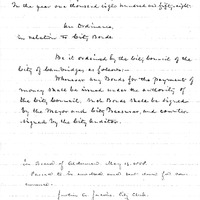 In the year one thousand eight hundred and fifty-eight.
An Ordinance,
In relation to City Bonds.
Be it ordained by the City Council of the
City of Cambridge, as follows:—
Whenever any Bonds for the payment of
money shall be issued under the authority of
the City Council, such Bonds shall be signed
by the Mayor and City Treasurer, and counter-
signed by the City Auditor.
In Board of Aldermen May 1858.
Passed to be ordained and sent down for con-
currence.
Justin A. Jacobs, City Clerk.